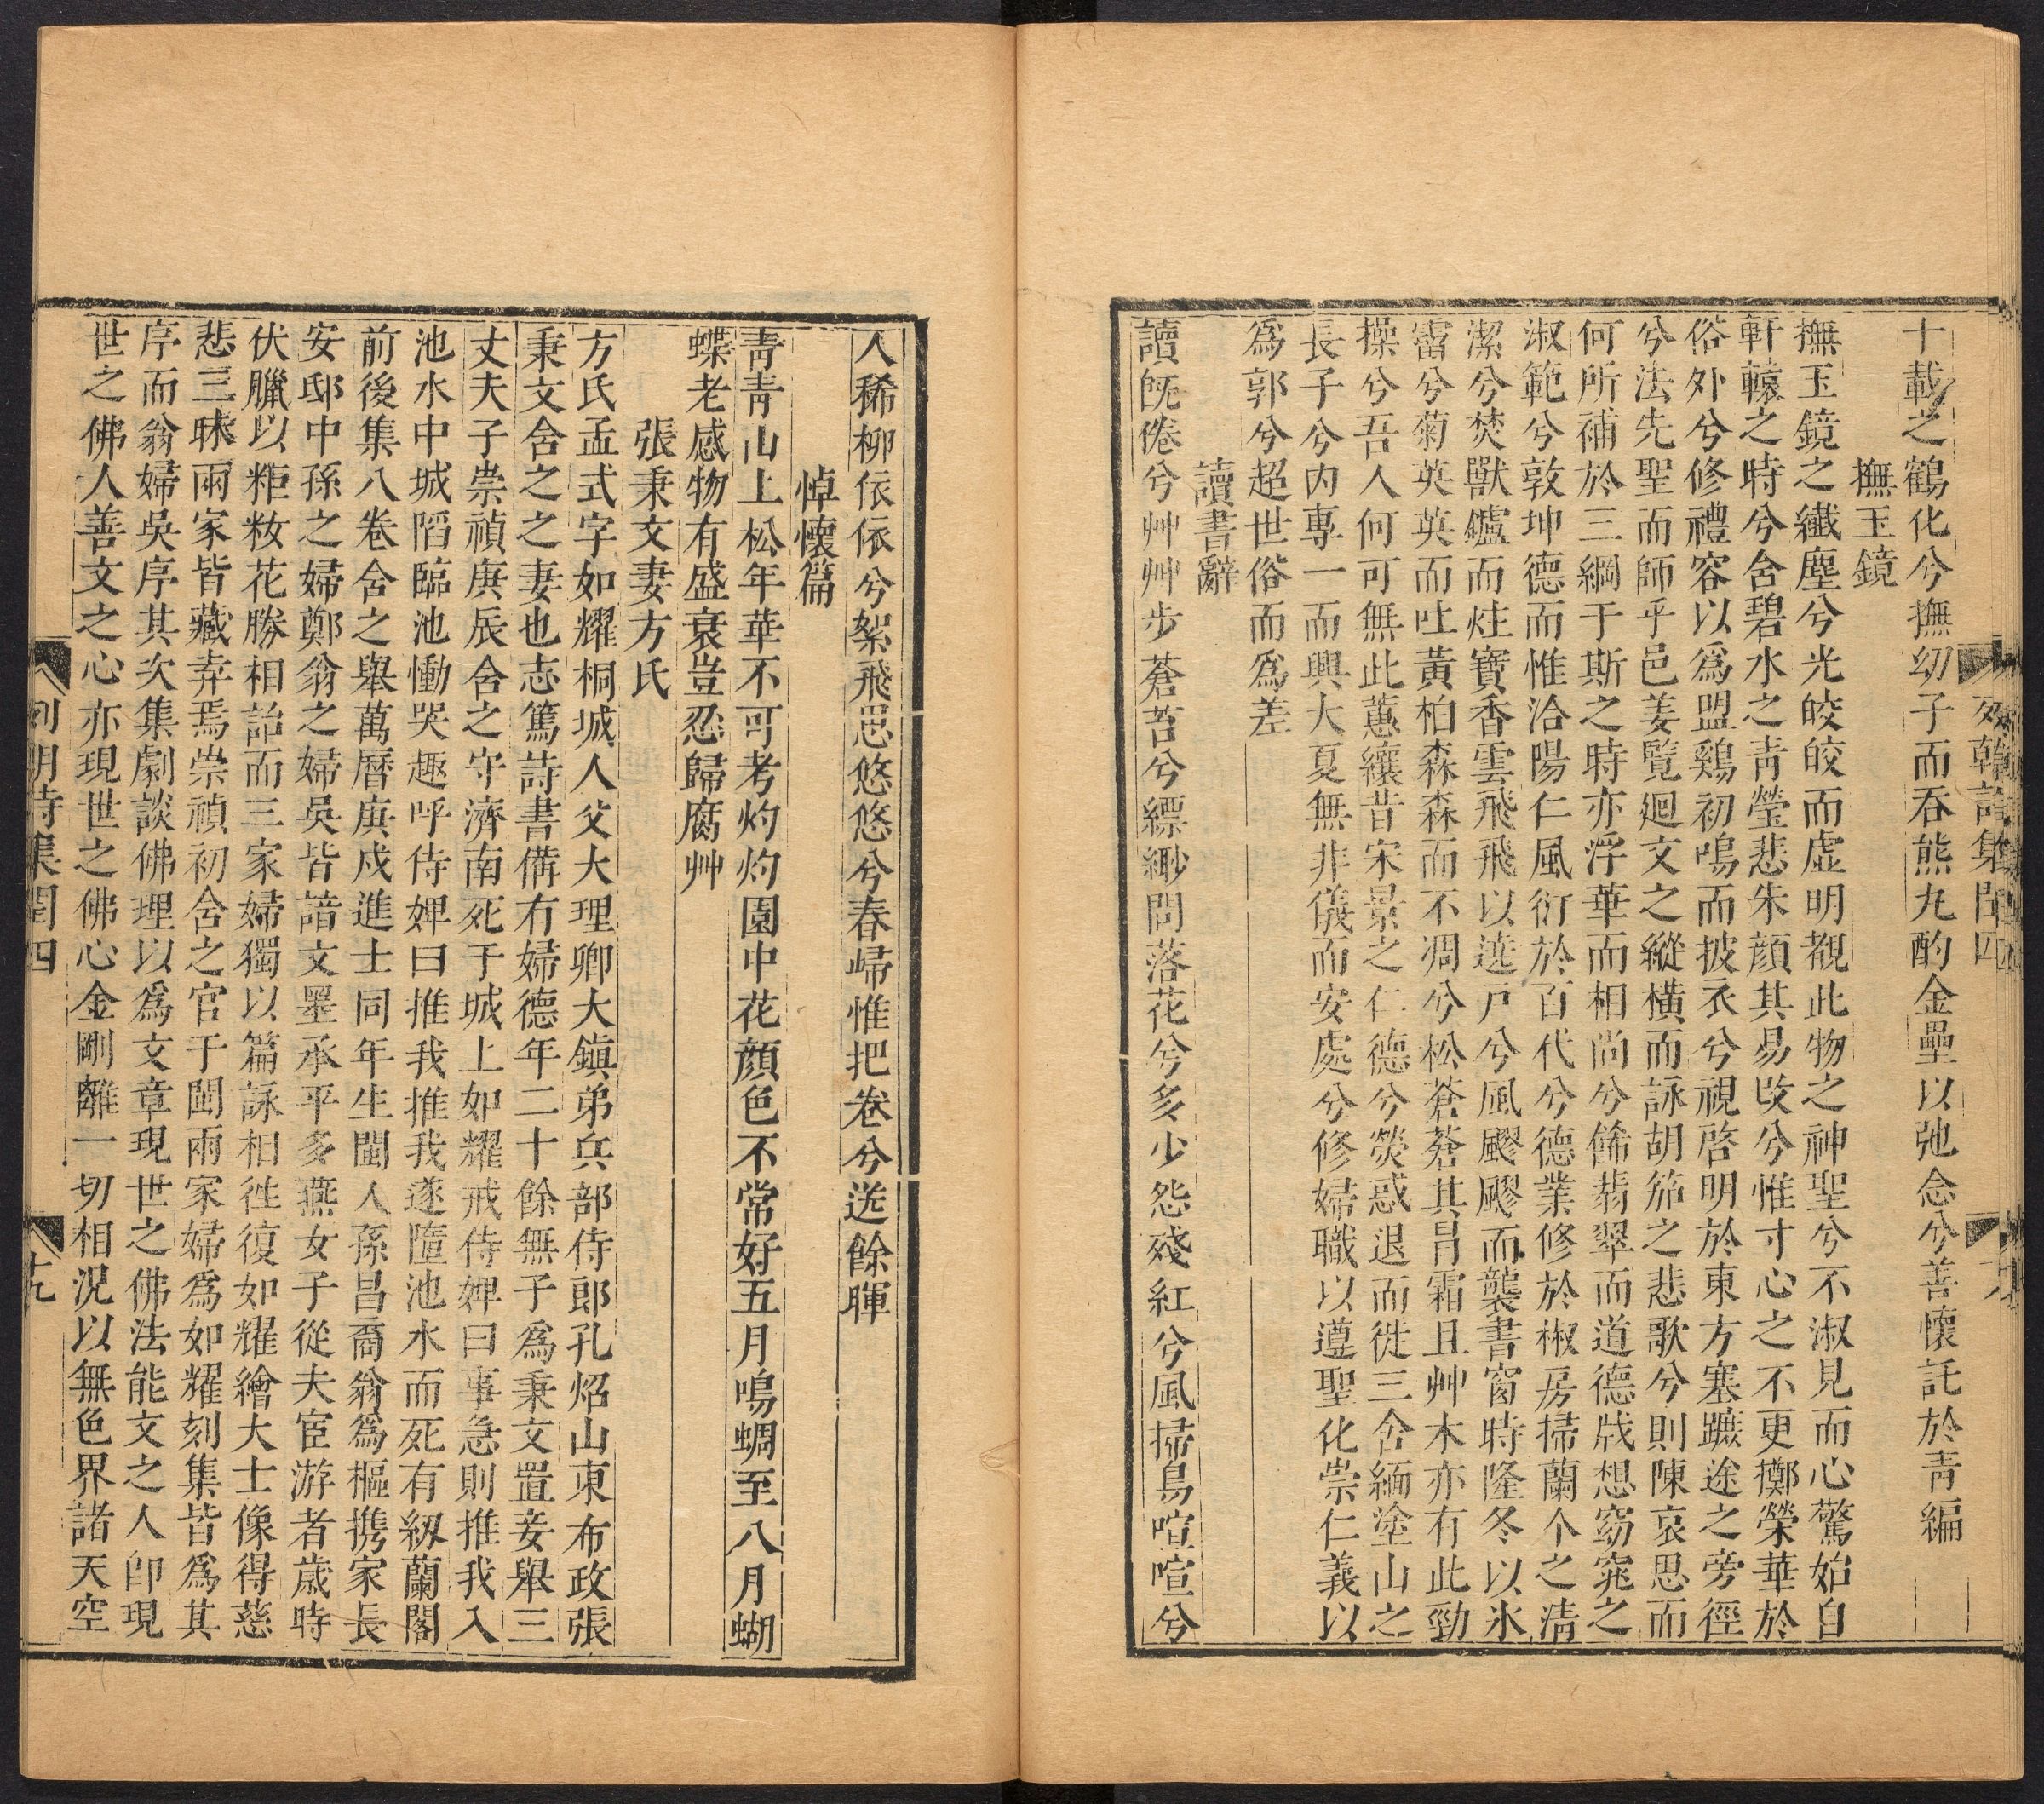 十載之鶴化兮撫幼子而吞熊丸酌金罍以弛念兮善懷託於青編
撫玉鏡
撫玉鏡之纖塵兮光皎皎而虛明覩此物之神聖兮不淑見而心驚始自
軒轅之時兮舍碧水之青瑩悲朱顏其易改兮惟寸心之不更擲榮華於
俗外兮修禮容以爲盟鷄初鳴而披衣兮視啓明於東方塞躕途之旁徑
兮法先聖而師乎邑姜覽廻文之縱橫而詠胡笳之悲歌兮則陳哀思而
何所補於三綱于斯之時亦浮華而相尚兮餙翡翠而道德戕想窈窕之
淑範兮敦坤德而惟洽陽仁風衍於百代兮德業修於椒房掃蘭个之淸
潔兮焚獸鑪而炷寶香雲飛飛以遶戸兮風飂飂而襲書窗時隆冬以氷
雷兮菊英英而吐黃柏森森而不凋兮松蒼蒼其冐霜且艸木亦有此勁
操兮吾人何可無此蕙纕昔宋景之仁德兮熒惑退而徙三舍緬塗山之
長子兮内專一而興大夏無非儀而安處兮修婦職以遵聖化崇仁義以
爲郭兮超世俗而爲差
讀書辭
讀旣倦兮艸艸步蒼苔兮縹緲問落花兮多少怨殘紅兮風掃鳥喧喧兮
人稀柳依依兮絮飛思悠悠兮春歸惟把卷兮送餘暉
悼懷篇
靑靑山上松年華不可考灼灼園中花顏色不常好五月鳴蜩至八月蝴
蝶老感物有盛衰豈忍歸腐艸
張秉文妻方氏
方氏孟式字如耀桐城人父大理卿大鎭弟兵部侍郎孔炤山東布政張
秉文舍之之妻也志篤詩書備有婦德年二十餘無子爲秉文置妾舉三
丈夫子崇禎庚辰舍之守濟南死于城上如耀戒侍婢曰事急則推我入
池水中城陷臨池慟哭趣呼侍婢曰推我推我遂隨池水而死有紉蘭閣
前後集八卷舍之舉萬曆庚戍進士同年生閩人孫昌裔翁爲樞携家長
安邸中孫之婦鄭翁之婦吳皆諳文墨承平多燕女子從夫宦游者歲時
伏臘以粔籹花勝相詒而三家婦獨以篇詠相徃復如耀繪大士像得慈
悲三昧兩家皆藏弆焉崇禎初舍之官于閩兩家婦爲如耀刻集皆爲其
序而翁婦吳序其次集劇談佛理以爲文章現世之佛法能文之人卽現
世之佛人善文之心亦現世之佛心金剛離一切相況以無色界諸天空
列朝詩集閏四
十九